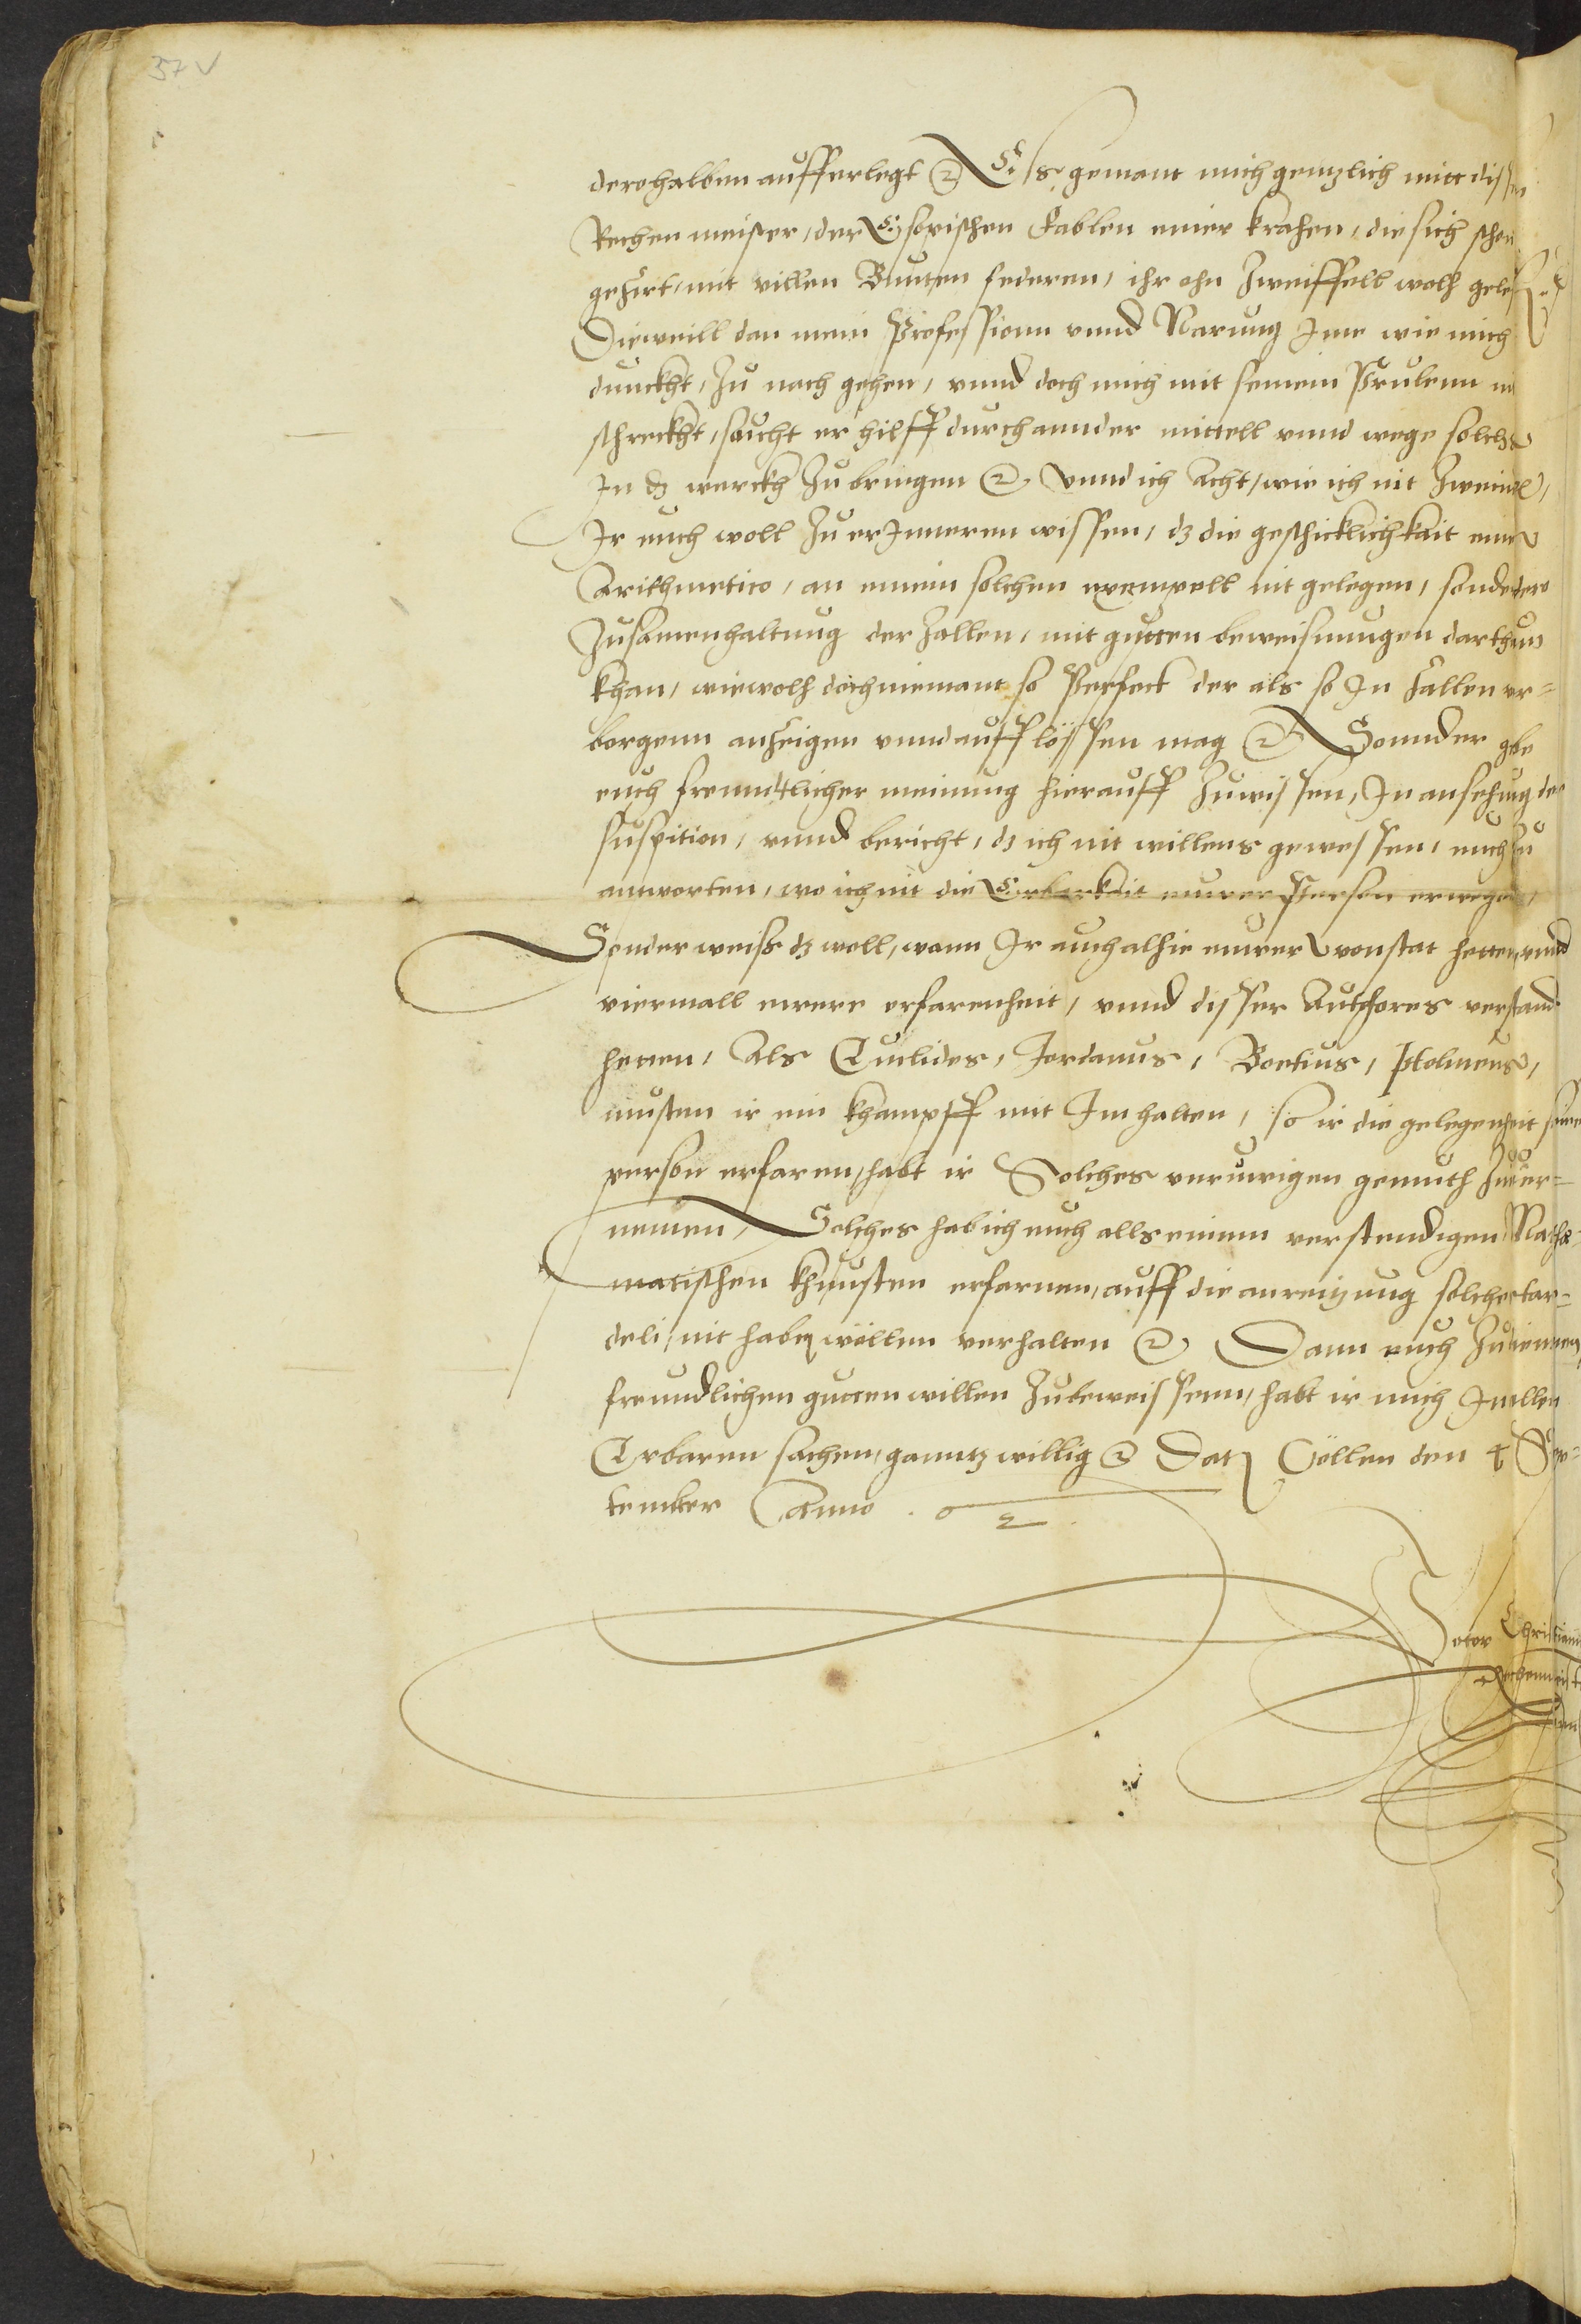 37 v
derohalben aufferlegt @ Es gemant mich gentzlich mitt dissen
Rechenmeister, der Esopischen Fablen einer krahen, die sich schon
geziert, mit villen Bunten federen, ihr ohn Zweiffell wolh geles
Dieweill dan mein Profession vnnd Narung Ime wie mich
dunckht, zu nach gehen, vnnd doch mich mit seinem Prulenn ni
schreckht, sucht er hilff durch annder mittell vnnd wege solchs
In dz werckh zu bringen @ Vnnd ich acht, wie ich nit Zweiuel,
Ir euch woll zu erInneren wissen, dz die geschicklichkait eines
Arithmetico, an einem solchen exempell nit gelegen, sonder
Zusamenhaltung der Zallen, mit gutten beweisnungen darthun
khan, wiewolh doch niemant so Perfect der als so In Zallen ver=
borgenn anzeigen vnnd aufflössen mag @ Sonnder gebe
euch freundtlicher meinung hierauff zuwissen, In ansehung der
suspition, vnnd bericht, dz ich nit willens gewessen, euch zu
antworten, wo ich nit die Erbarkait eurer Person erwegen,
Sonder weiß dz woll, wann Ir auch alhie eurer wonstat hetten, vnnd
viermall ewere erfarenheit, vnnd disser Authores verstand
hetten, Als Euclides, Jordanus, Boetius, Ptolmeus,
musten ir ein khampff mit Im halten, so ir die gelegenheit seiner
person erfaren, habt ir Solches vnruwigen gemuth zuuer=
nemen, Solches hab ich euch alls einem verstendigen Mathe
matischen khunsten erfarnen, auff die anreitzung solcher tar=
deli, nit haben wöllen verhalten @ Dann euch zu dienen
freundlichen gutten willen zubeweissenn, habt ir mich In allen
Erbaren sachen, ganntz willig @ Datz Cöllen den 4 Sep=
tember Anno
Peter Christian
Rechenmeist